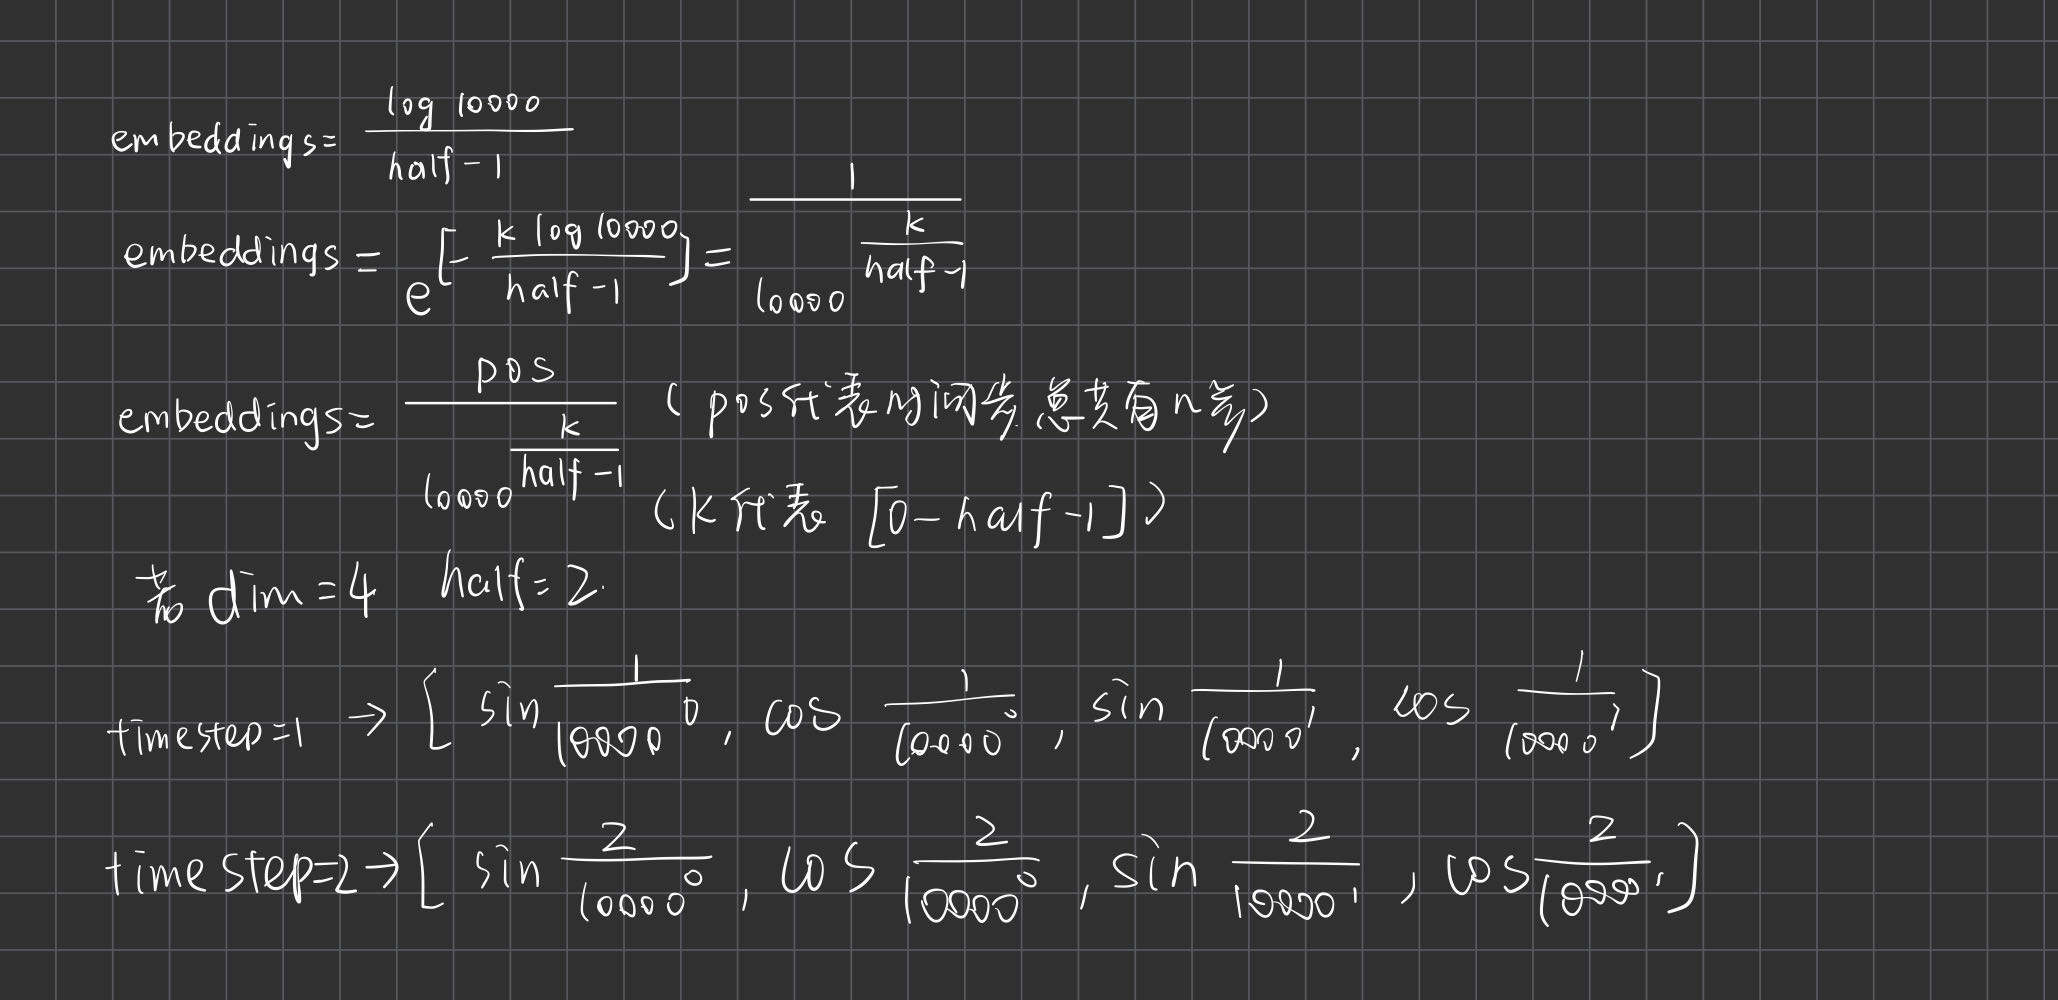 embeddings = \frac{log 10000}{half-1}
embeddings = e^{[-\frac{k log 10000}{half-1}]} = \frac{1}{10000^{\frac{k}{half-1}}}
embeddings = \frac{pos}{10000^{\frac{k}{half-1}}} (pos代表时间步 总共有n步)
(k代表 [0-half-1])
若 dim=4 half=2.
timestep=1 → [ sin \frac{1}{10000^0}, cos \frac{1}{10000^0}, sin \frac{1}{10000^1}, cos \frac{1}{10000^1} ]
timestep=2 → [ sin \frac{2}{10000^0}, cos \frac{2}{10000^0}, sin \frac{2}{10000^1}, cos \frac{2}{10000^1} ]